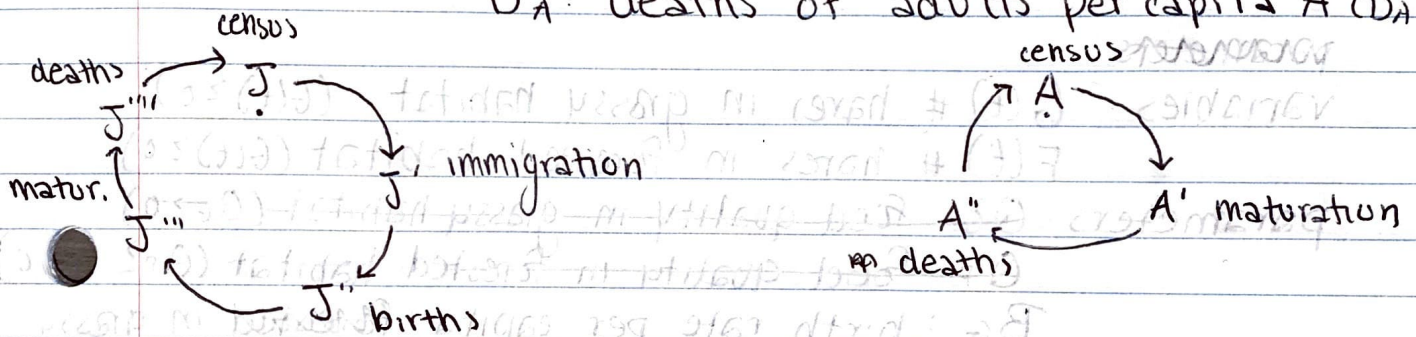 D_A: deaths of adults per capita A (D_A
census
deaths
J
J''''
J' immigration
matur.
J'''
J'' births
census
A
A' maturation
A''
deaths